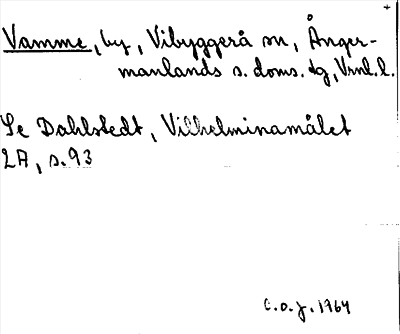 +
Vamme, by, Vibyggerå sn, Ånger-
manlands s. doms. tg, Vrnl.l.
Se Dahlstedt, Vilhelminamålet
2A, s. 93
C.O.J. 1964